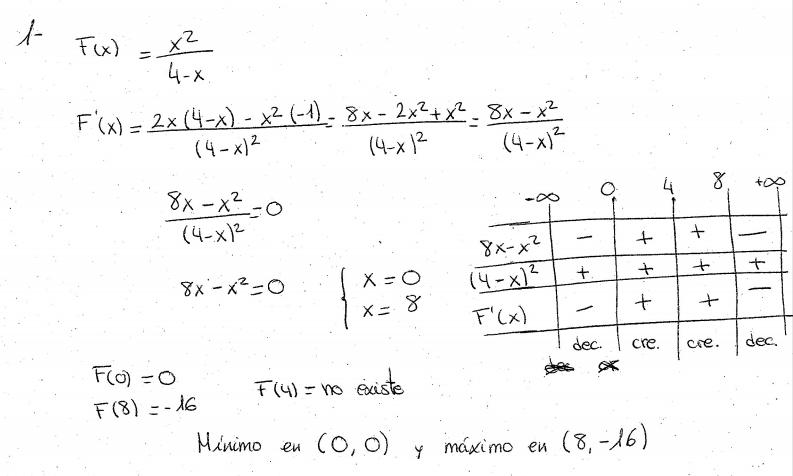 1-
F(x) = x²/(4-x)
F'(x) = (2x(4-x) - x²(-1))/(4-x)² = (8x - 2x² + x²)/(4-x)² = (8x - x²)/(4-x)²
(8x - x²)/(4-x)² = 0
8x - x² = 0 { x = 0
x = 8
-∞ 0 4 8 +∞
8x-x² - + + -
(4-x)² + + + +
F'(x) - + + -
dec. cre. cre. dec.
F(0) = 0
F(8) = -16
F(4) = no existe
Mínimo en (0,0) y máximo en (8,-16)